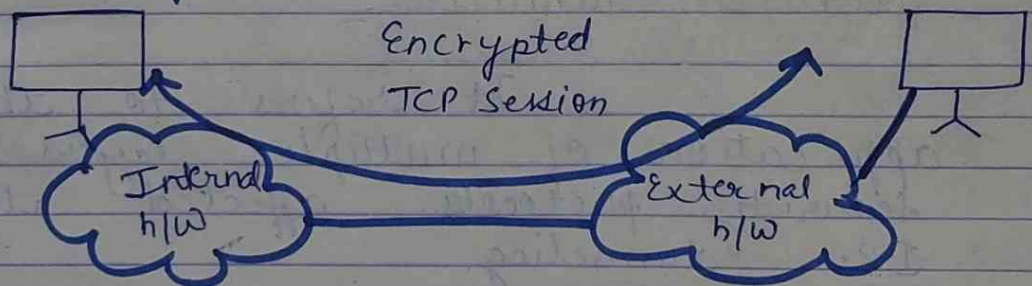 Encrypted
TCP Session
Internal
n/w
External
n/w